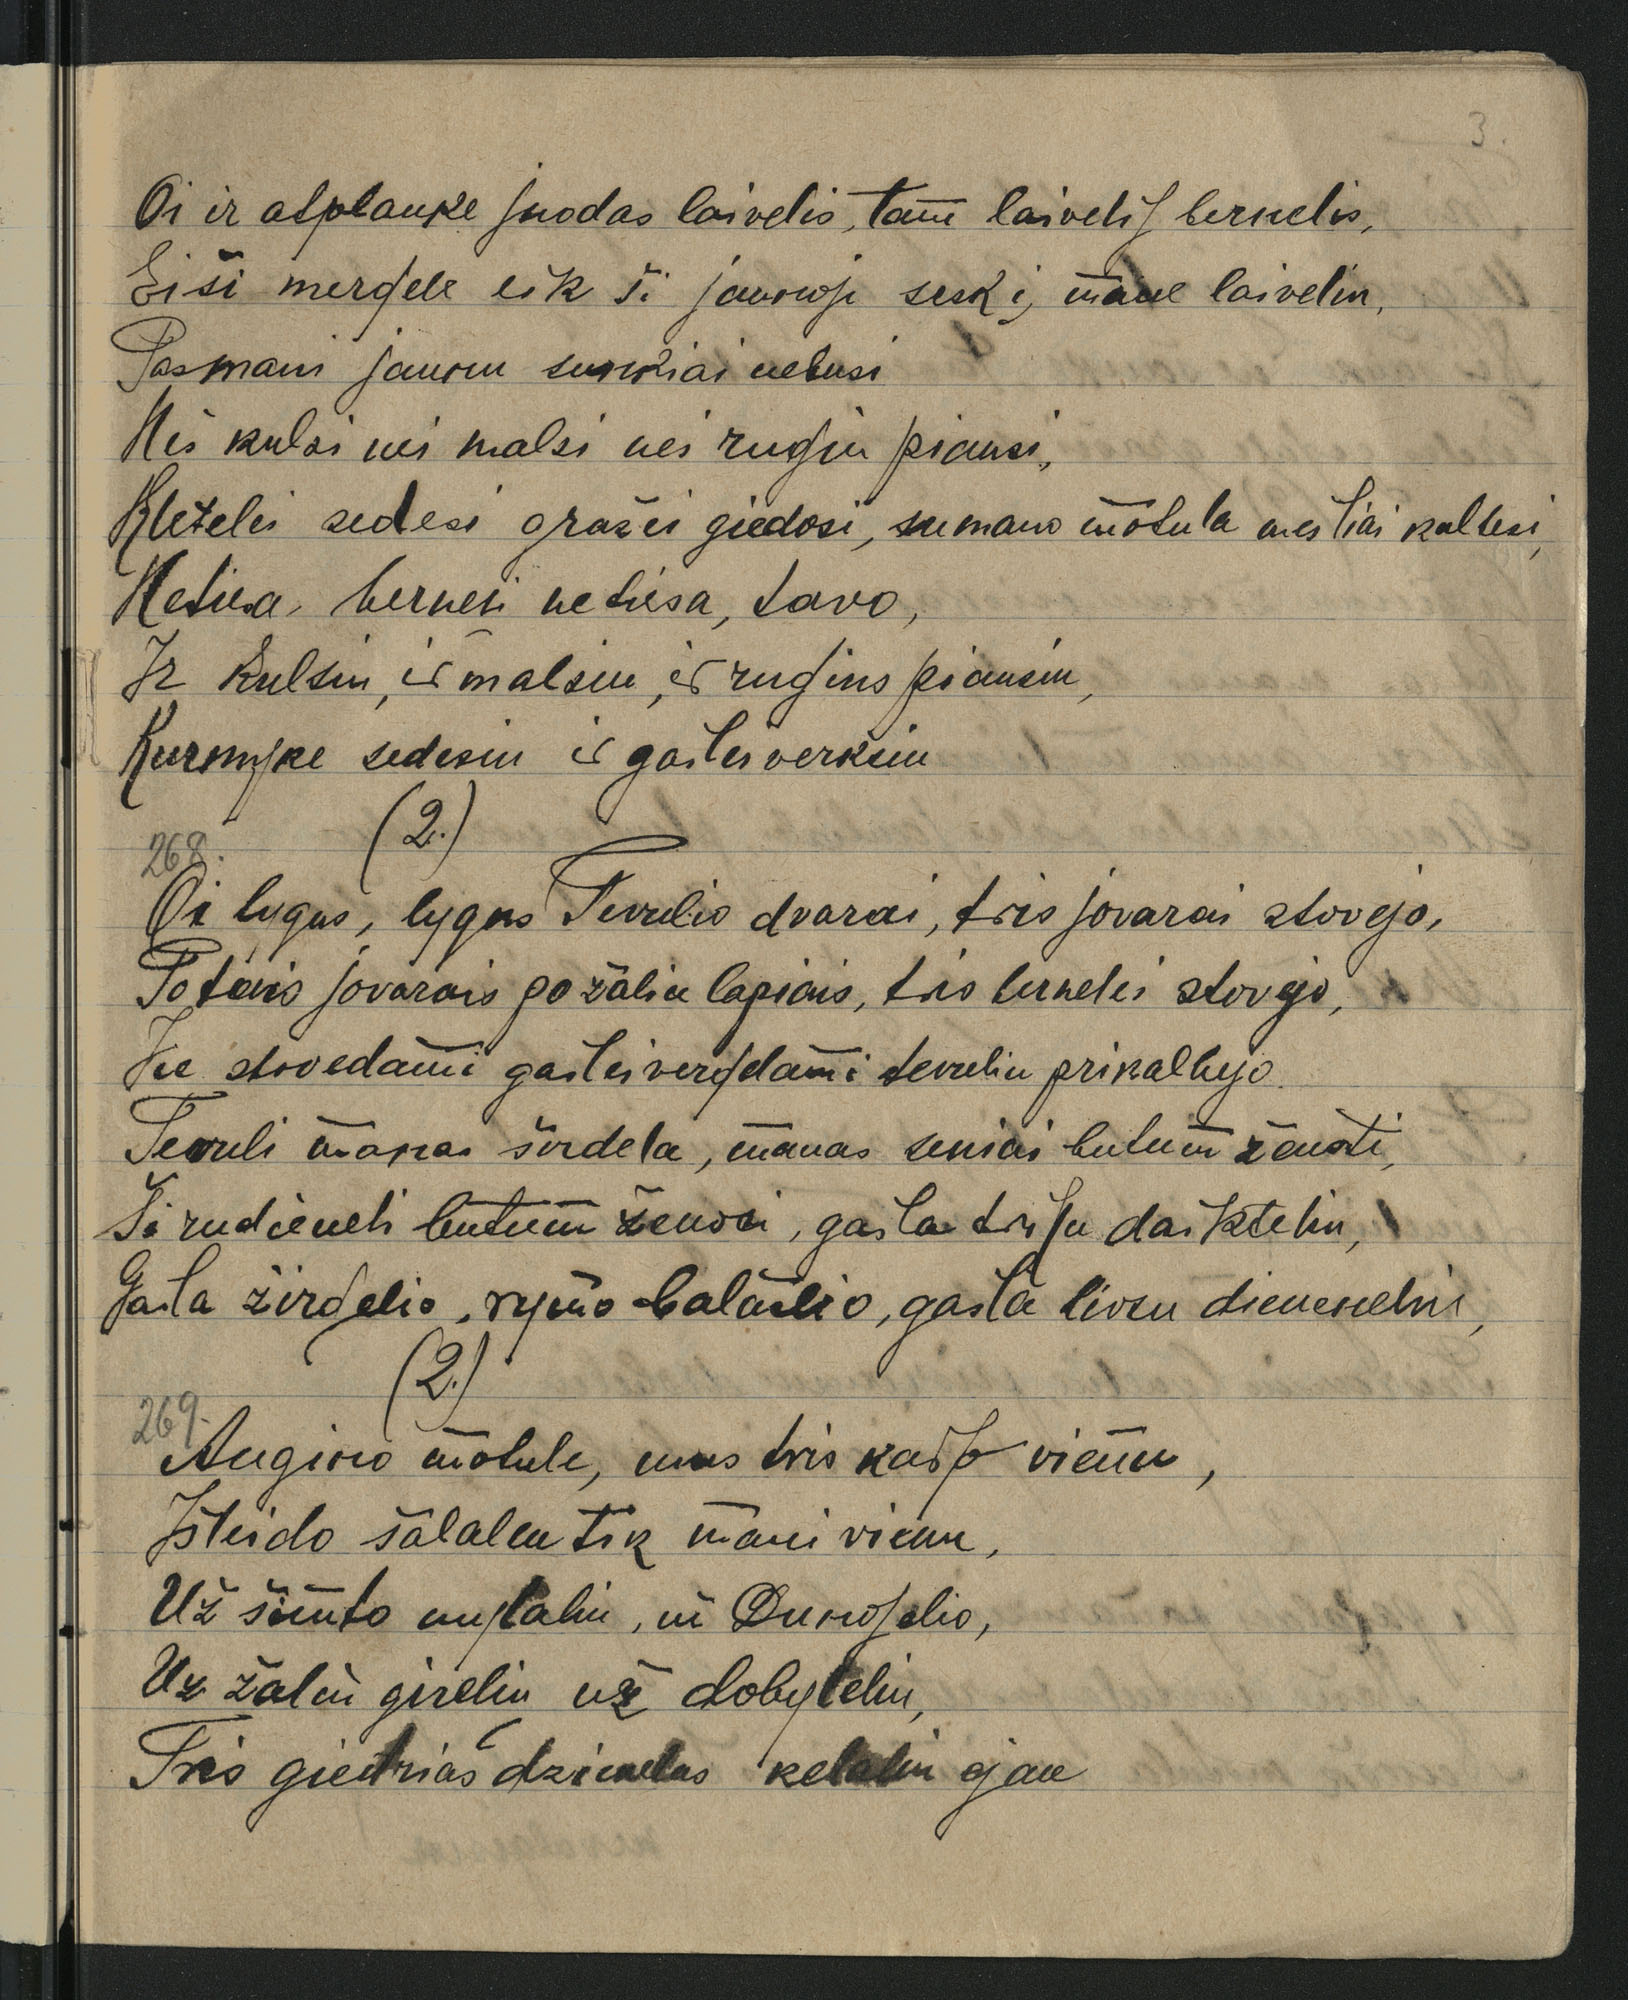 3.
Oi ir atplauke juodas laivelis, tam laivelij bernelis,
Eiši mergele eik ši jaunoji sesk į mane laivelin,
Pas mani jaunu sunkiai nebusi
Nei kulsi nei malsi nei rugiu piausi,
Kletelei sedesi gražei giedosi, su mano motula meiliai kalbesi,
Netiesa, berneli netiesa, tavo,
Ir kulsiu, ir malsiu, ir rugius piausiu,
Kurnyke sedesiu ir gailei verksiu
(2.)
268.
Oi lygus, lygus Tevulio dvarai, tris jovarai stovejo,
Po tais jovarais po žaliu lapiais, tris bernelei stovejo,
Jie stovedami gailei vergdami tevuliu prikalbejo.
Tevuli manas širdela, manas seniai butum ženoti,
Ši rudieneli butum ženoti, gaila triju daikteliu,
Gaila žirgelio, rymo balnelio, gaila tivsu dieneneliu,
(2.)
269.
Augino motule, mus tris kaip vienu,
Išleido šalaleu tik mani vienu,
Už šimto myleliu, už Dunojelio,
Už žaliu gireliu už dobyleliu,
Tris giedrias dzienelas kelaliu ejau